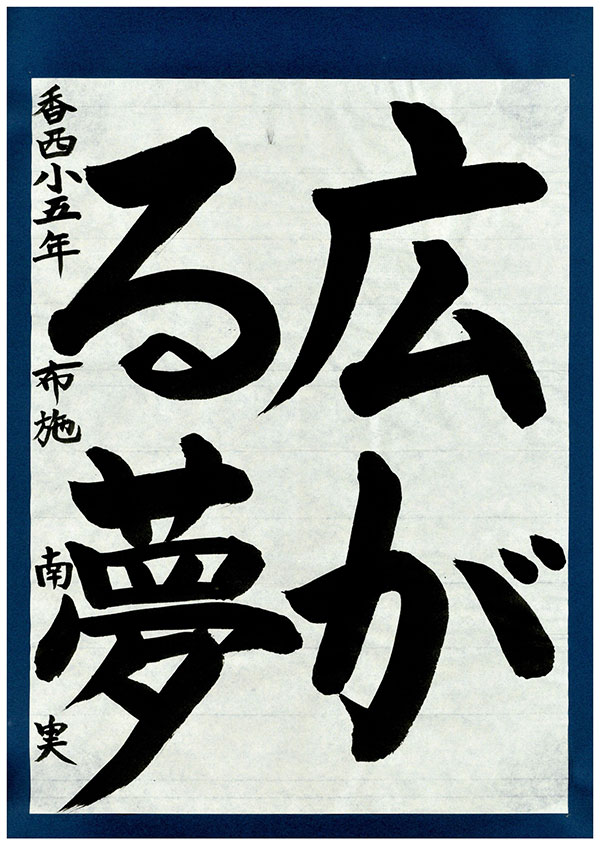 広が
る夢
香西小五年 布施 南実